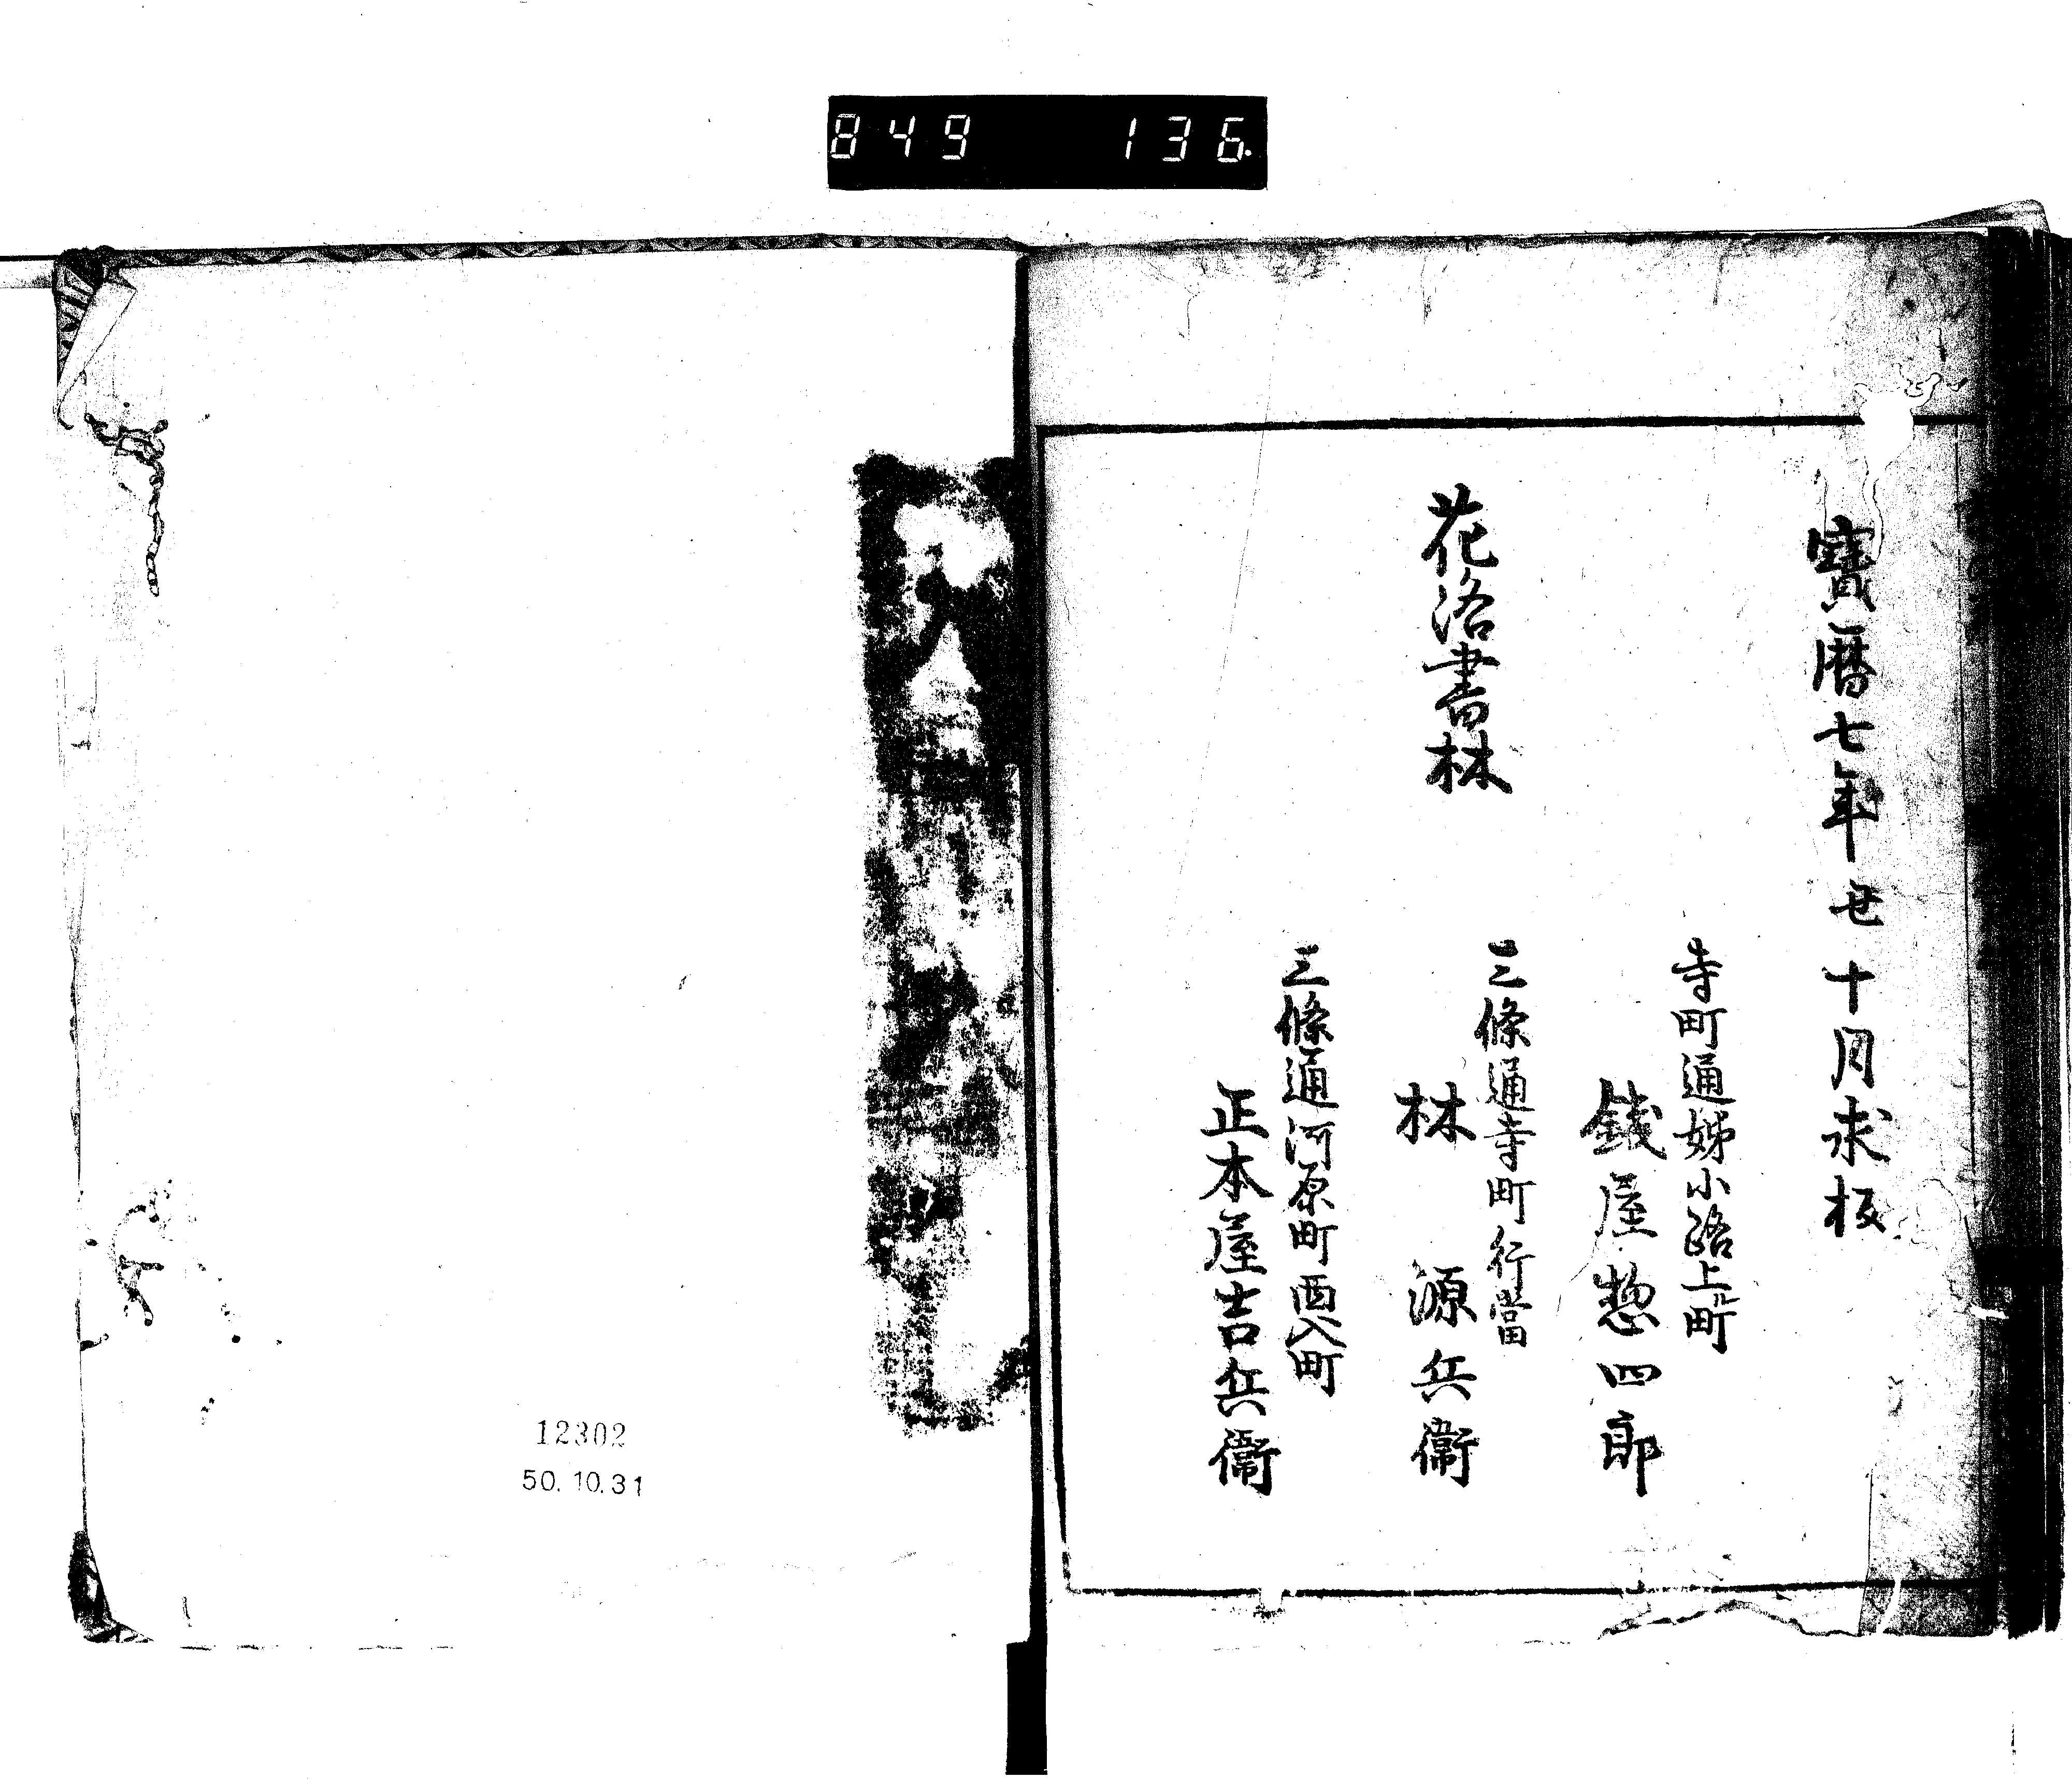 849 136.
寶暦七年丑十月求板
寺町通姊小路上町
錢屋惣四郎
花洛書林
三條通寺町行當
林源兵衞
三條通河原町西入町
正本屋吉兵衞
12302
50.10.31